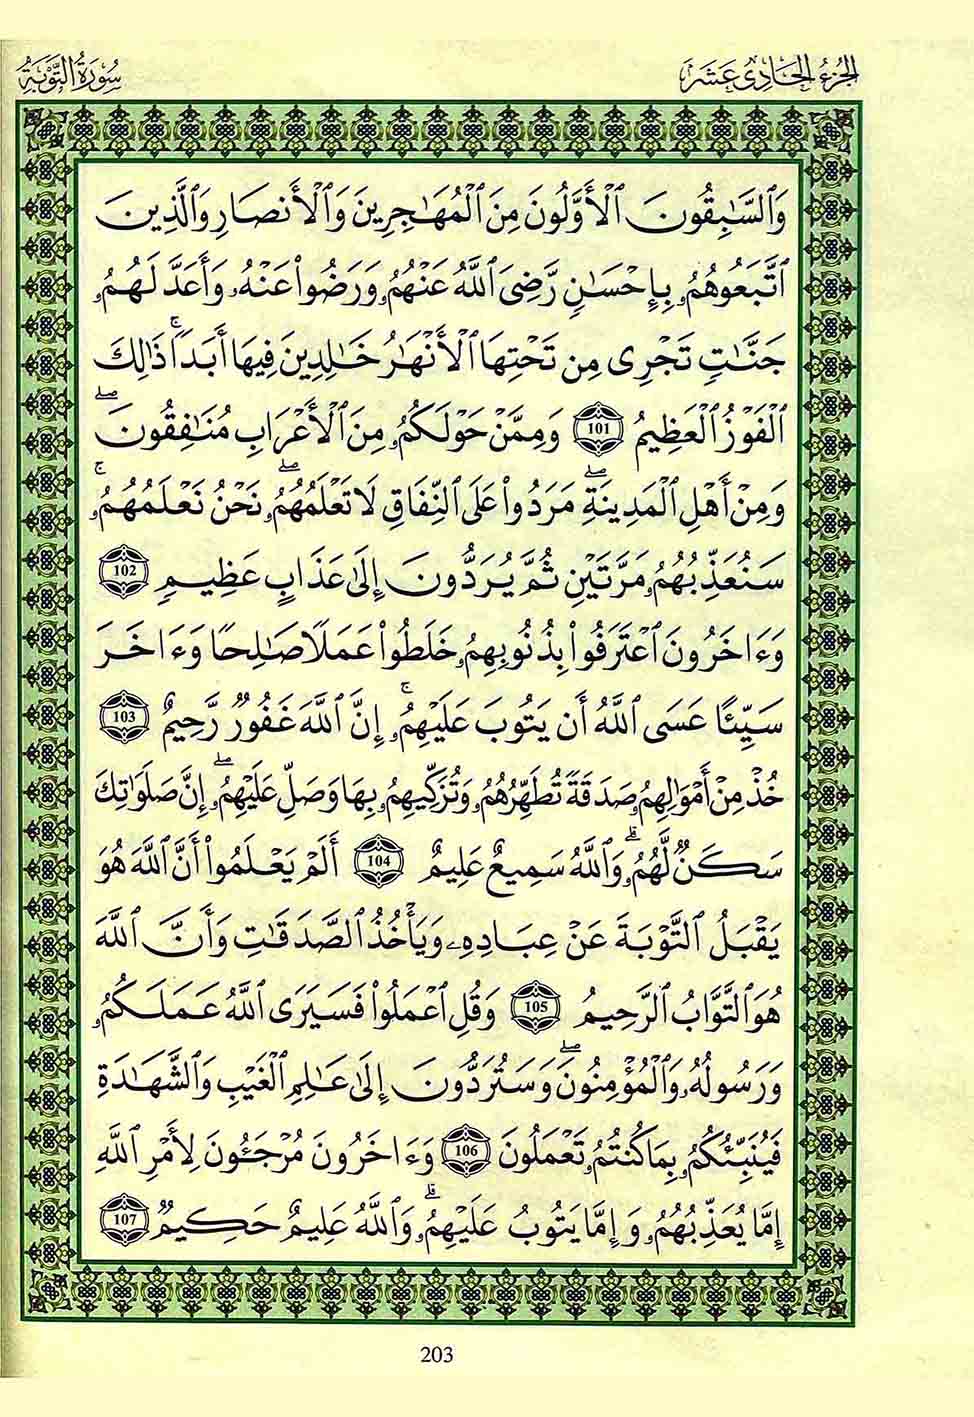 الجزء الحادى عشر
سورة التوبة
وَٱلسَّٰبِقُونَ ٱلْأَوَّلُونَ مِنَ ٱلْمُهَٰجِرِينَ وَٱلْأَنصَارِ وَٱلَّذِينَ
ٱتَّبَعُوهُمُۥ بِإِحْسَٰنٍ رَّضِىَ ٱللَّهُ عَنْهُمُۥ وَرَضُوا۟ عَنْهُۥ وَأَعَدَّ لَهُمُۥ
جَنَّٰتٍ تَجْرِى مِن تَحْتِهَا ٱلْأَنْهَٰرُ خَٰلِدِينَ فِيهَا أَبَدًا ۚ ذَٰلِكَ
ٱلْفَوْزُ ٱلْعَظِيمُ 101 وَمِمَّنْ حَوْلَكُمُۥ مِنَ ٱلْأَعْرَابِ مُنَٰفِقُونَ ۖ
وَمِنْ أَهْلِ ٱلْمَدِينَةِ ۖ مَرَدُوا۟ عَلَى ٱلنِّفَاقِ لَا تَعْلَمُهُمُۥ ۖ نَحْنُ نَعْلَمُهُمُۥ ۚ
سَنُعَذِّبُهُمُۥ مَرَّتَيْنِ ثُمَّ يُرَدُّونَ إِلَىٰ عَذَابٍ عَظِيمٍ 102
وَءَاخَرُونَ ٱعْتَرَفُوا۟ بِذُنُوبِهِمُۥ خَلَطُوا۟ عَمَلًا صَٰلِحًا وَءَاخَرَ
سَيِّئًا عَسَى ٱللَّهُ أَن يَتُوبَ عَلَيْهِمُۥ ۚ إِنَّ ٱللَّهَ غَفُورٌ رَّحِيمٌ 103
خُذْ مِنْ أَمْوَٰلِهِمُۥ صَدَقَةً تُطَهِّرُهُمُۥ وَتُزَكِّيهِمُۥ بِهَا وَصَلِّ عَلَيْهِمُۥ ۖ إِنَّ صَلَوَٰتِكَ
سَكَنٌ لَّهُمُۥ ۗ وَٱللَّهُ سَمِيعٌ عَلِيمٌ 104 أَلَمْ يَعْلَمُوا۟ أَنَّ ٱللَّهَ هُوَ
يَقْبَلُ ٱلتَّوْبَةَ عَنْ عِبَادِهِۦ وَيَأْخُذُ ٱلصَّدَقَٰتِ وَأَنَّ ٱللَّهَ
هُوَ ٱلتَّوَّابُ ٱلرَّحِيمُ 105 وَقُلِ ٱعْمَلُوا۟ فَسَيَرَى ٱللَّهُ عَمَلَكُمُۥ
وَرَسُولُهُۥ وَٱلْمُؤْمِنُونَ ۖ وَسَتُرَدُّونَ إِلَىٰ عَٰلِمِ ٱلْغَيْبِ وَٱلشَّهَٰدَةِ
فَيُنَبِّئُكُمُۥ بِمَا كُنتُمُۥ تَعْمَلُونَ 106 وَءَاخَرُونَ مُرْجَـُٔونَ لِأَمْرِ ٱللَّهِ
إِمَّا يُعَذِّبُهُمُۥ وَإِمَّا يَتُوبُ عَلَيْهِمُۥ ۗ وَٱللَّهُ عَلِيمٌ حَكِيمٌ 107
203